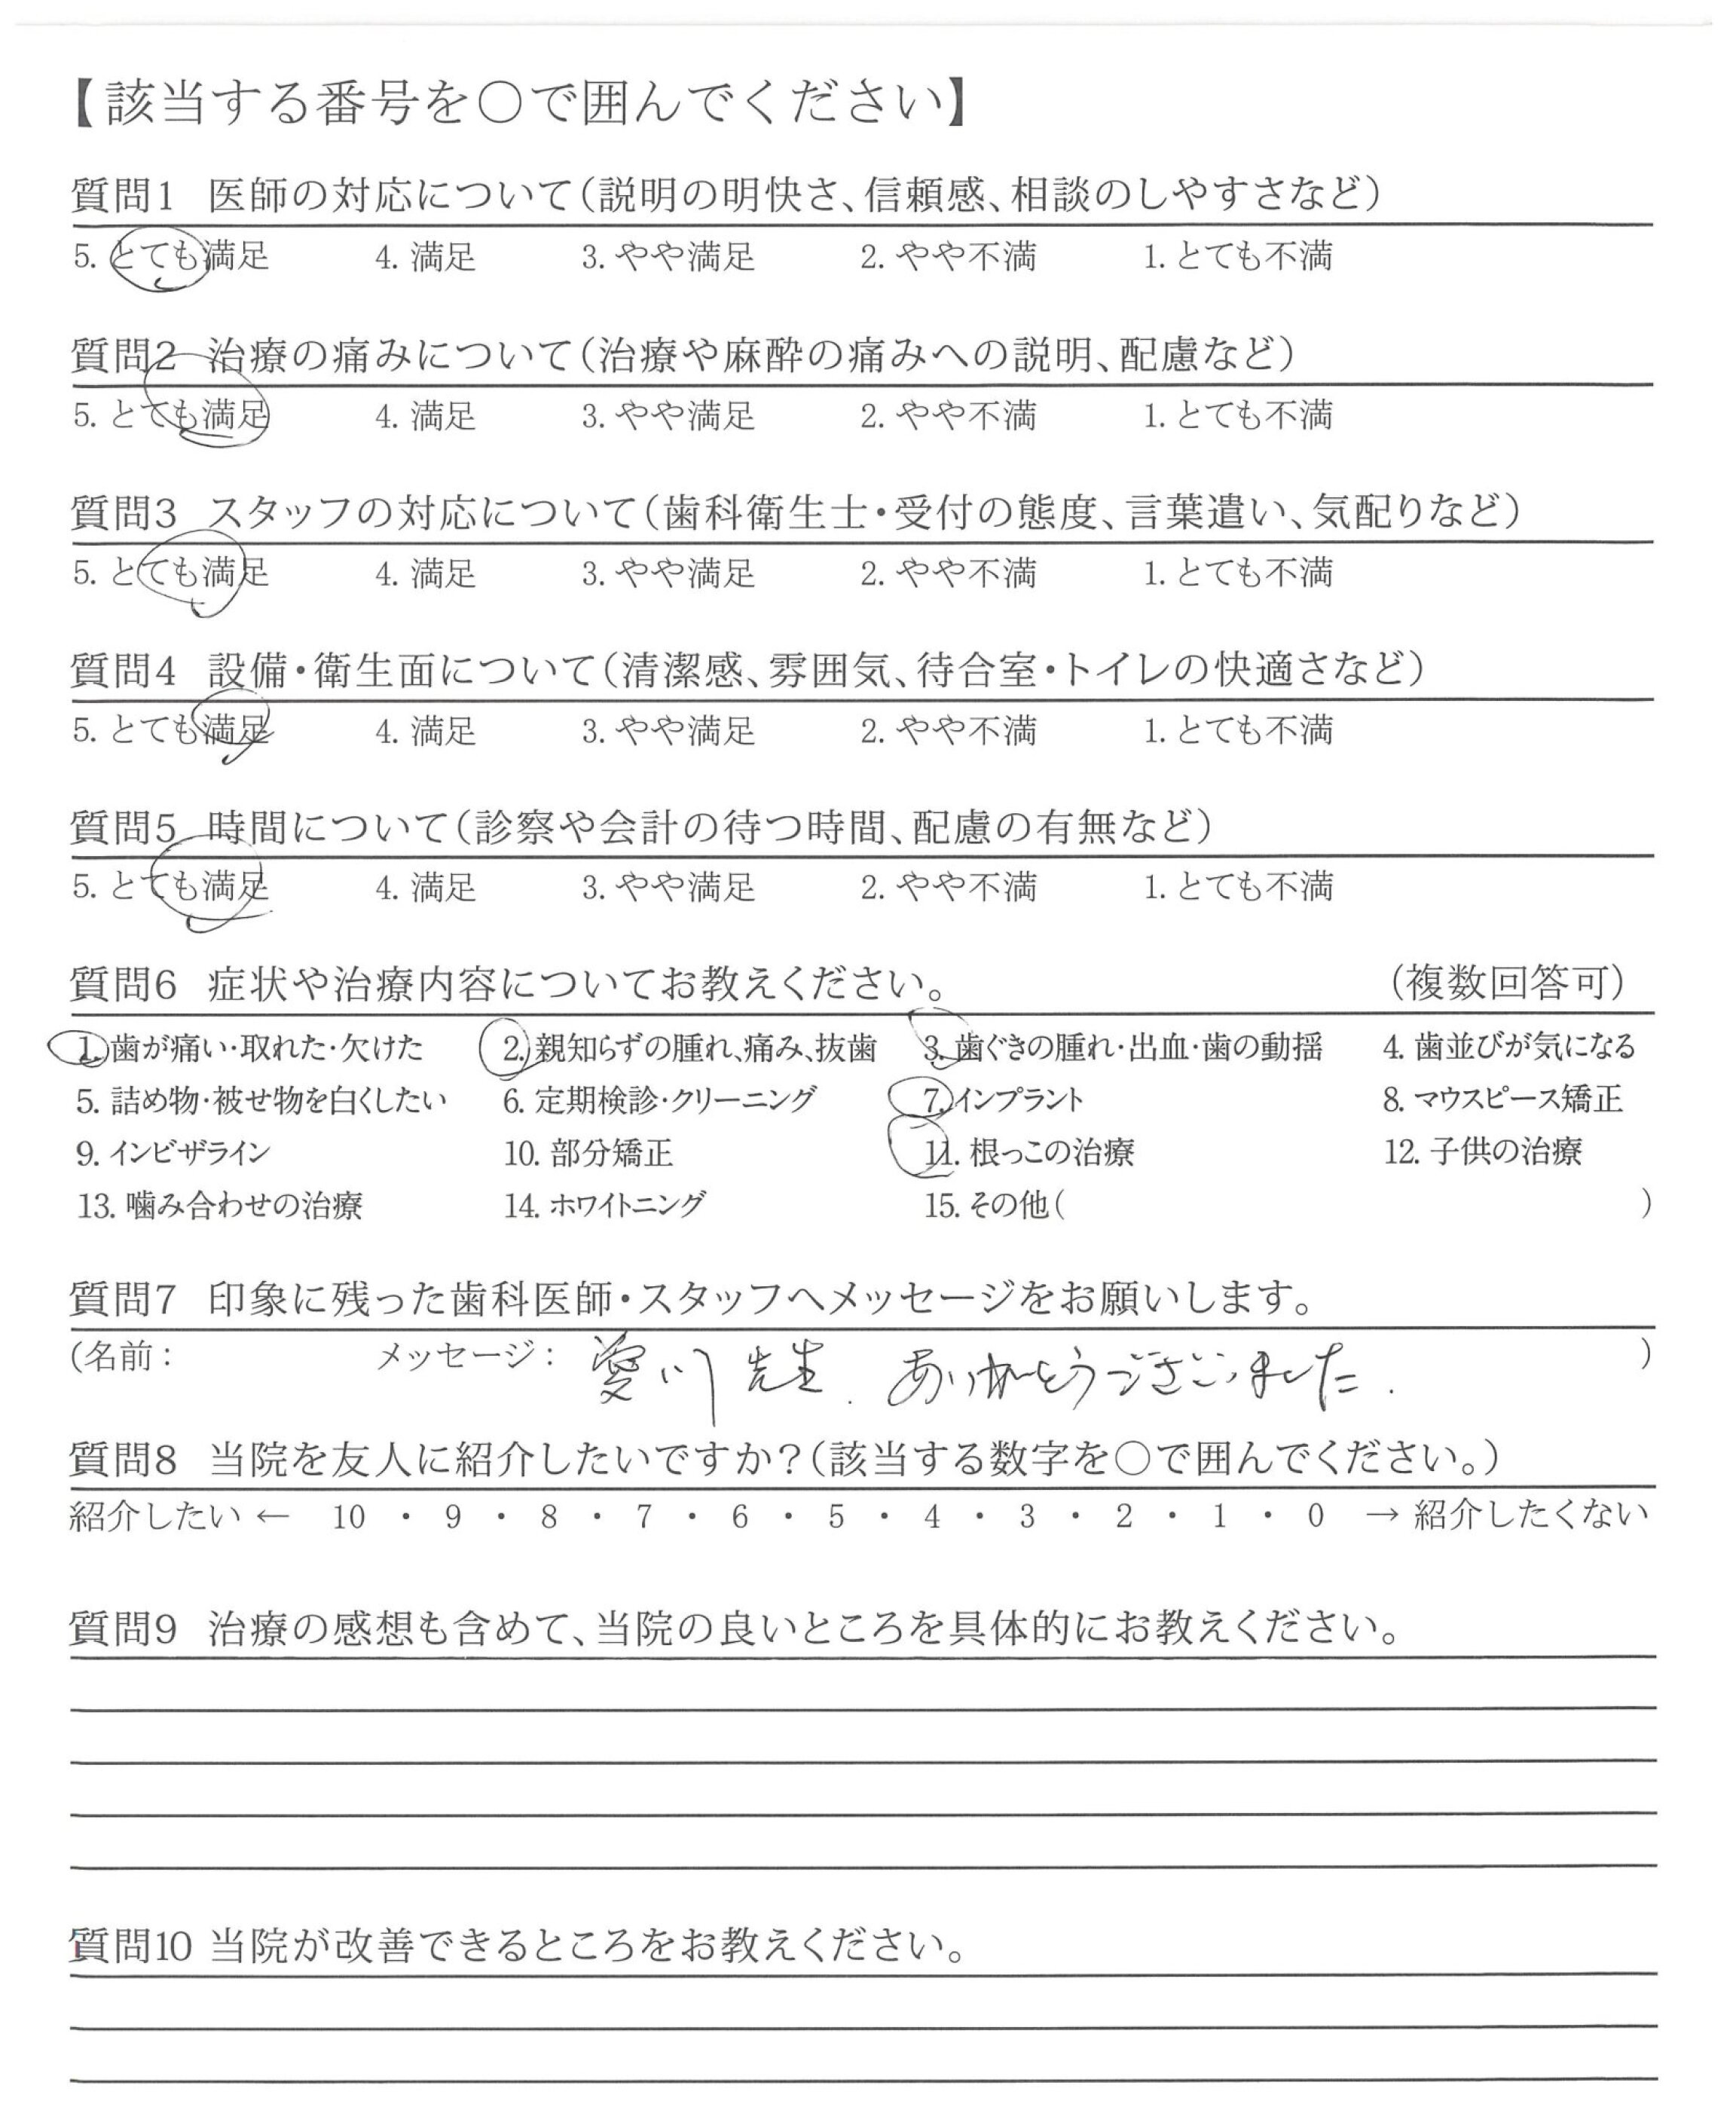 【該当する番号を○で囲んでください】
質問1 医師の対応について(説明の明快さ、信頼感、相談のしやすさなど)
5. とても満足 4. 満足 3. やや満足 2. やや不満 1. とても不満
質問2 治療の痛みについて(治療や麻酔の痛みへの説明、配慮など)
5. とても満足 4. 満足 3. やや満足 2. やや不満 1. とても不満
質問3 スタッフの対応について(歯科衛生士・受付の態度、言葉遣い、気配りなど)
5. とても満足 4. 満足 3. やや満足 2. やや不満 1. とても不満
質問4 設備・衛生面について(清潔感、雰囲気、待合室・トイレの快適さなど)
5. とても満足 4. 満足 3. やや満足 2. やや不満 1. とても不満
質問5 時間について(診察や会計の待つ時間、配慮の有無など)
5. とても満足 4. 満足 3. やや満足 2. やや不満 1. とても不満
質問6 症状や治療内容についてお教えください。 (複数回答可)
1. 歯が痛い・取れた・欠けた 2. 親知らずの腫れ、痛み、抜歯 3. 歯ぐきの腫れ・出血・歯の動揺 4. 歯並びが気になる
5. 詰め物・被せ物を白くしたい 6. 定期検診・クリーニング 7. インプラント 8. マウスピース矯正
9. インビザライン 10. 部分矯正 11. 根っこの治療 12. 子供の治療
13. 噛み合わせの治療 14. ホワイトニング 15. その他( )
質問7 印象に残った歯科医師・スタッフへメッセージをお願いします。
(名前: メッセージ: 愛川先生. ありがとうございました. )
質問8 当院を友人に紹介したいですか?(該当する数字を○で囲んでください。)
紹介したい ← 10 ・ 9 ・ 8 ・ 7 ・ 6 ・ 5 ・ 4 ・ 3 ・ 2 ・ 1 ・ 0 → 紹介したくない
質問9 治療の感想も含めて、当院の良いところを具体的にお教えください。
質問10 当院が改善できるところをお教えください。